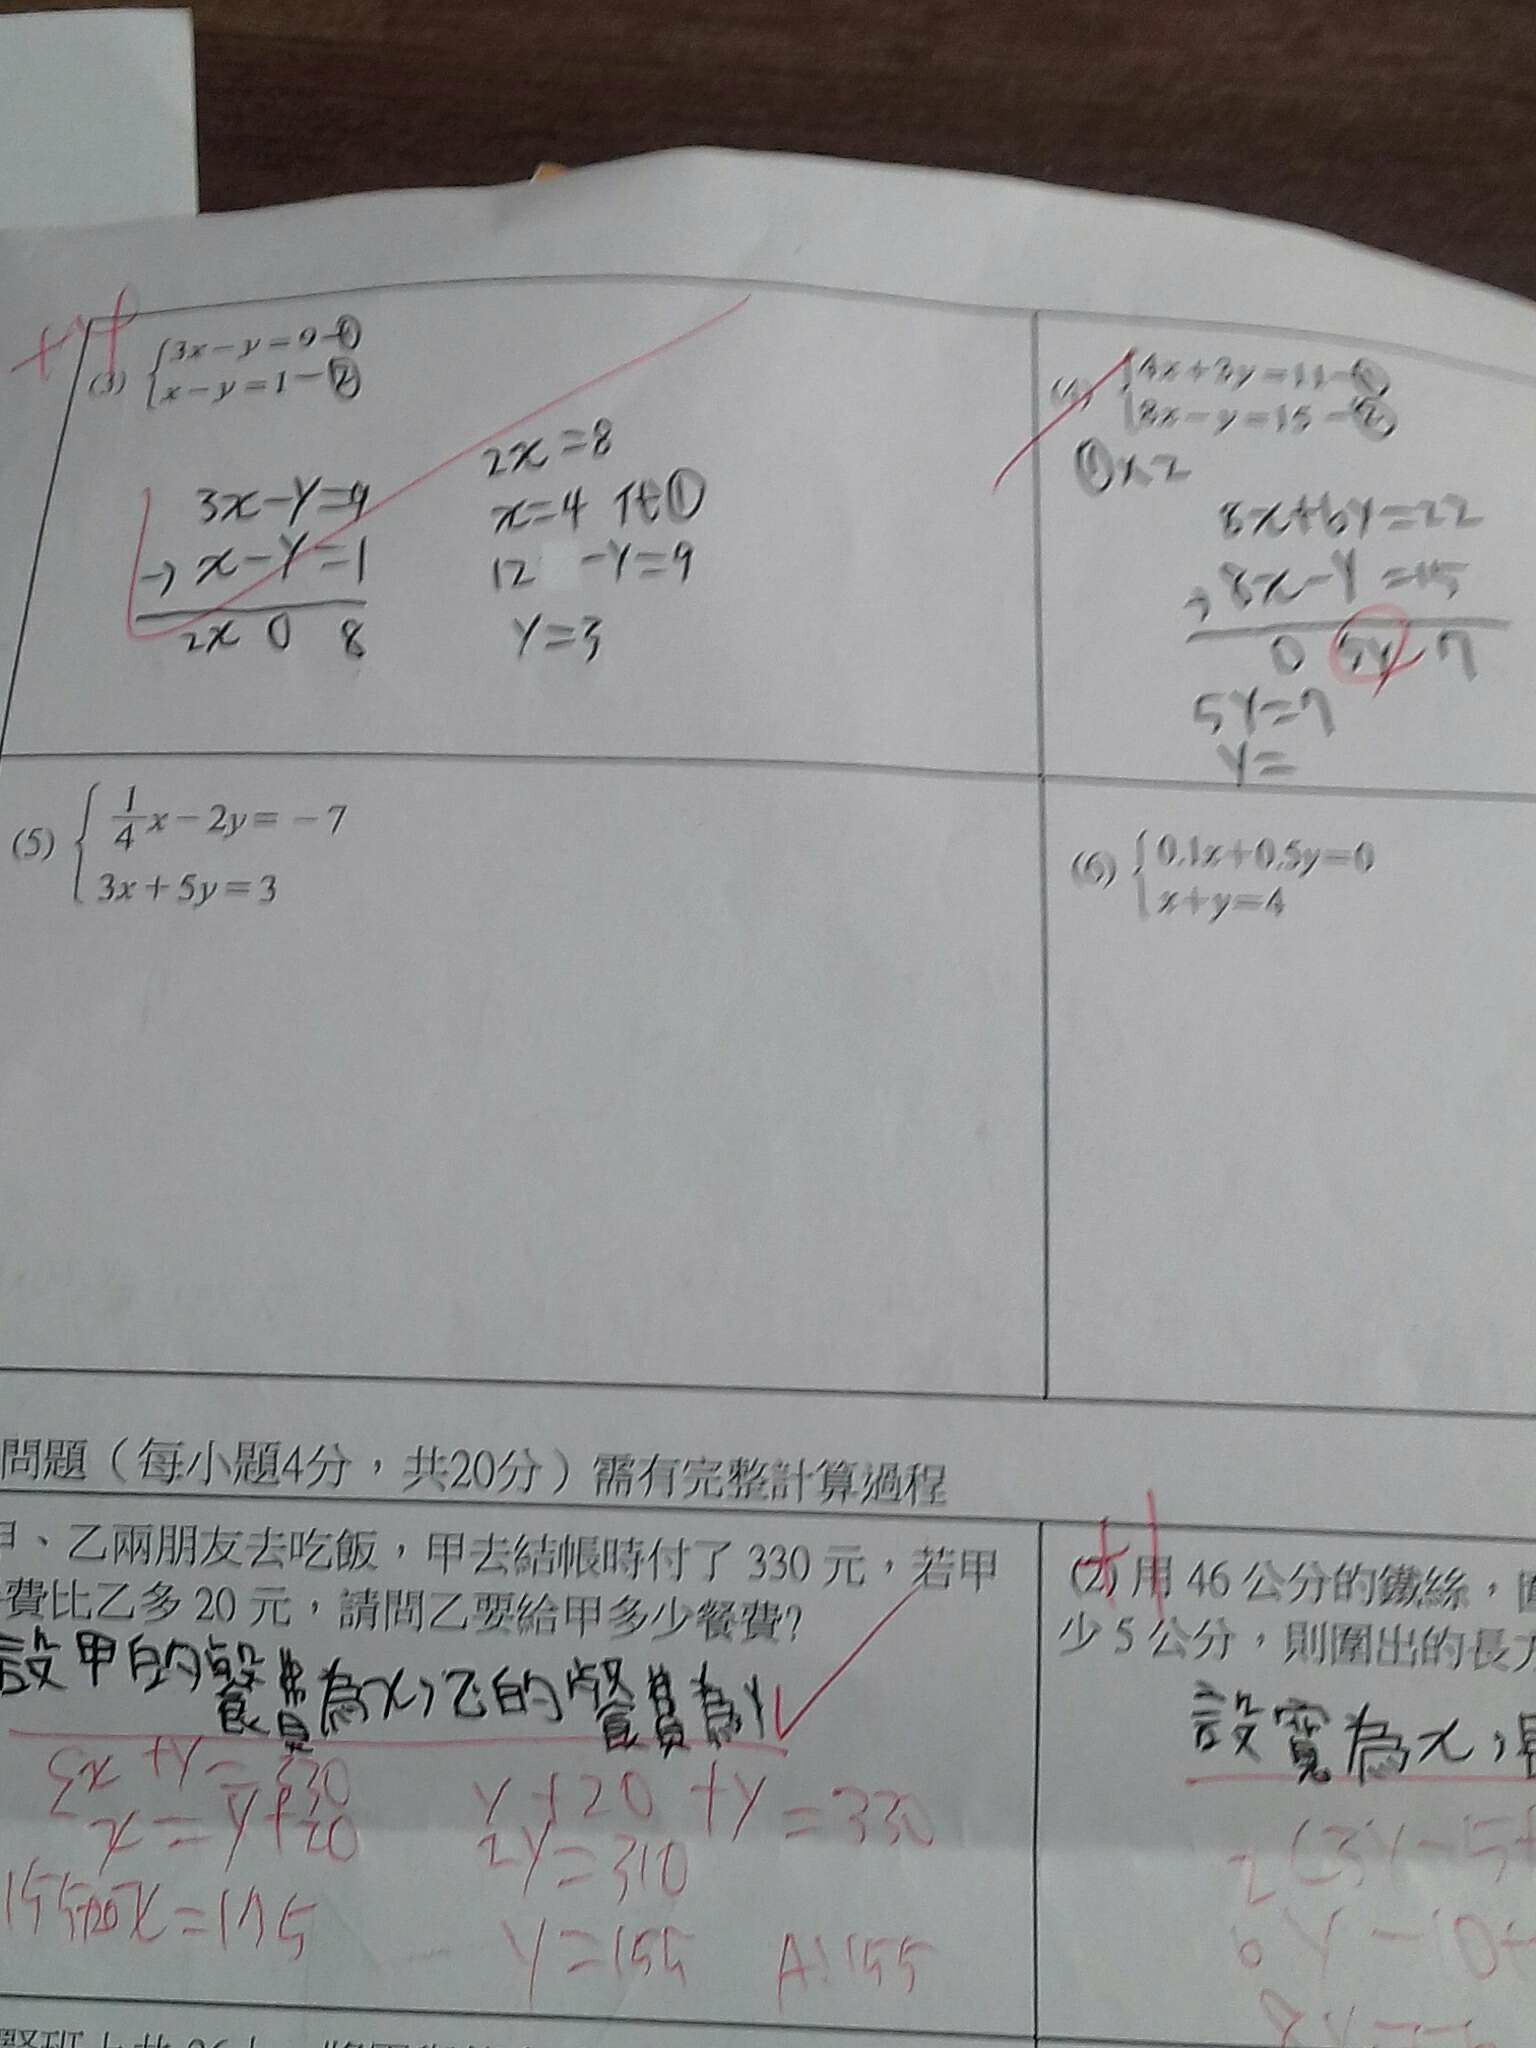 (3) {3x-y=9-①
x-y=1-②
3x-y=9
-) x-y=1
2x 0 8
2x=8
x=4 代①
12 -y=9
y=3
(4) {4x+3y=11-①
8x-y=15-②
①×2
8x+6y=22
-) 8x-y=15
0 5y 7
5y=7
y=
(5) {1/4x-2y=-7
3x+5y=3
(6) {0.1x+0.5y=0
x+y=4
問題(每小題4分,共20分)需有完整計算過程
、乙兩朋友去吃飯,甲去結帳時付了 330 元,若甲
費比乙多 20 元,請問乙要給甲多少餐費?
設甲的餐費為x,乙的餐費為y
x+y=330
x=y+20
x=175
y+20+y=330
2y=310
y=155 A:155
(2) 用 46 公分的鐵絲,
少 5 公分,則圍出的長
設寬為x,
2(3y-5+
6y-10+